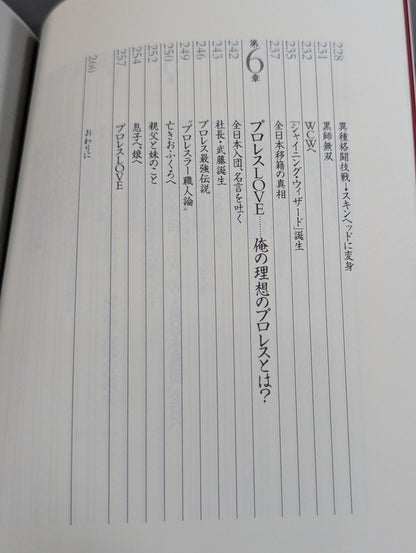 228 異種格闘技戦→スキンヘッドに変身
231 黒師無双
232 WCWへ
235 「シャイニング・ウィザード」誕生
237 全日本移籍の真相
第6章 プロレスLOVE……俺の理想のプロレスとは?
242 全日本入団、名言を吐く
243 社長・武藤誕生
246 プロレス最強伝説
249 “プロレスラー職人論”
250 亡きお・ふくろへ
252 親父と妹のこと
254 息子へ、娘へ
257 プロレスLOVE
260 おわりに